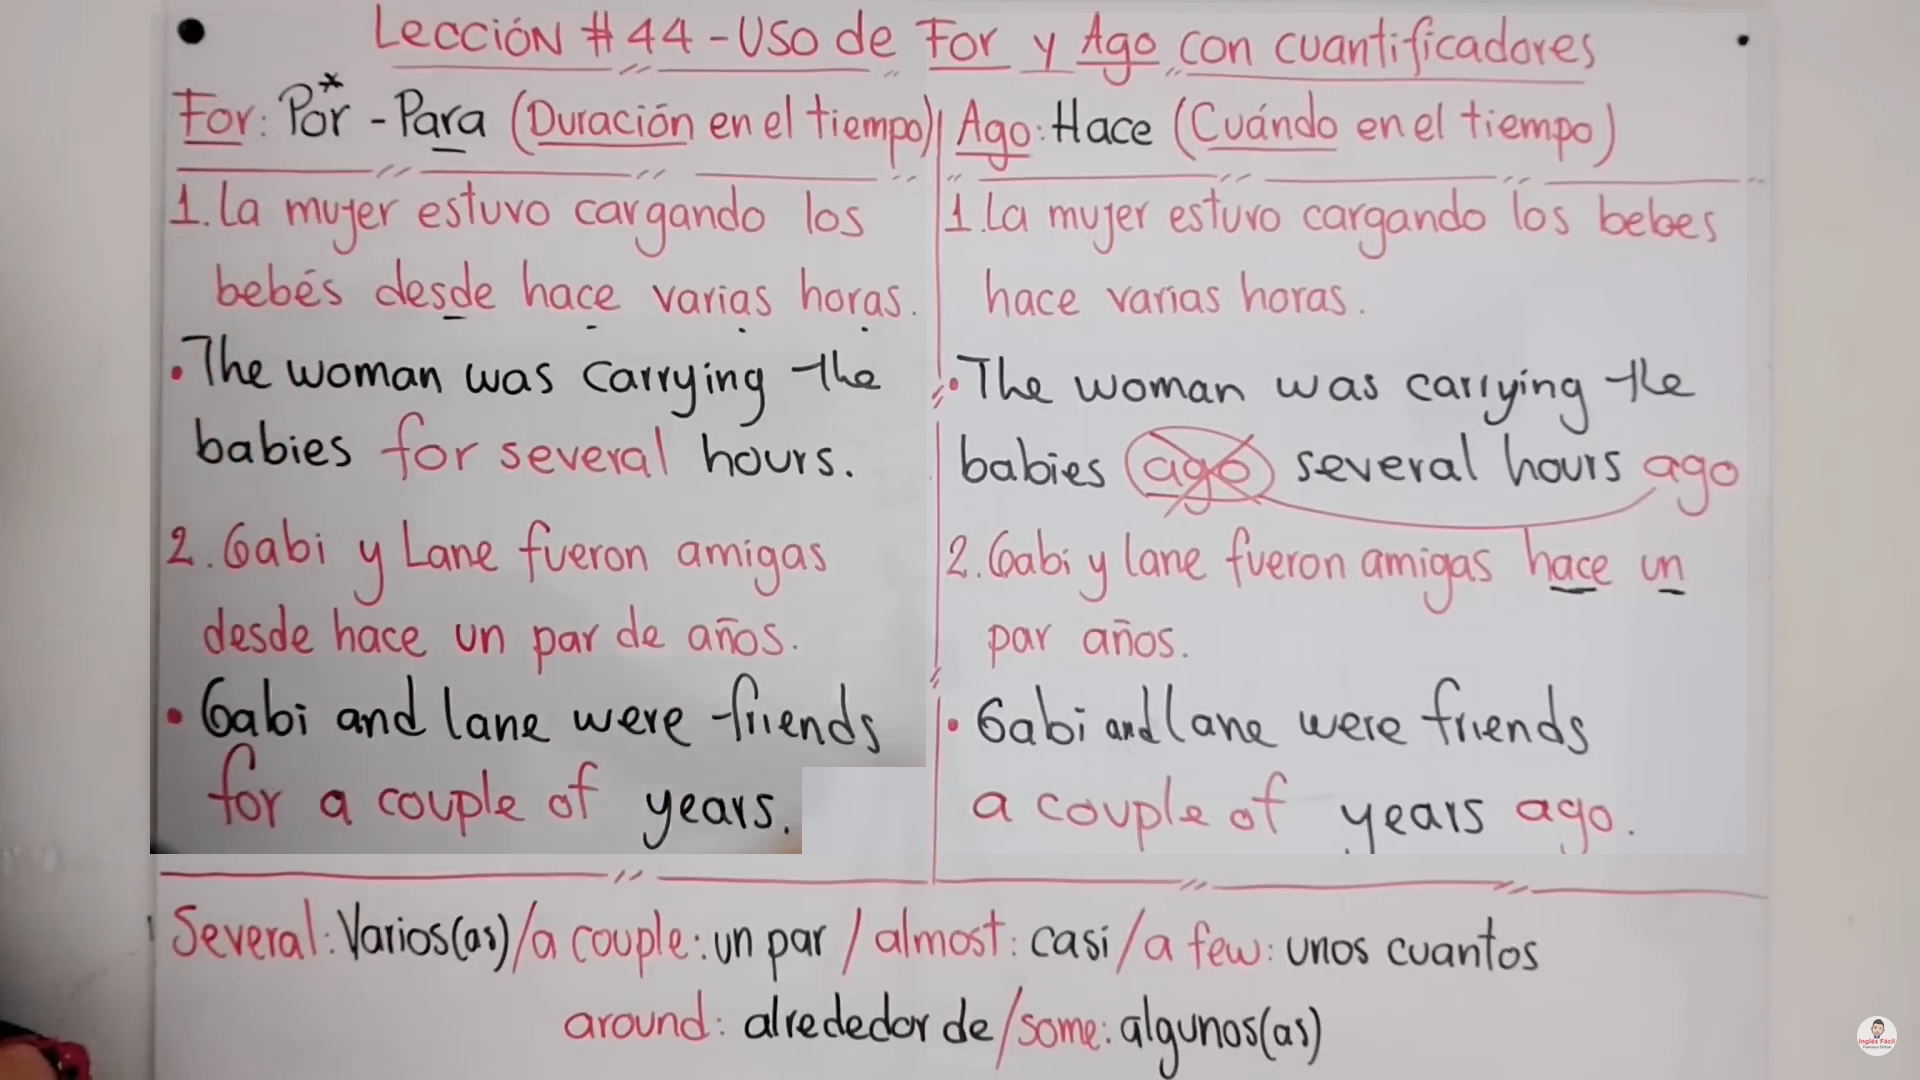 Lección # 44 - Uso de For y Ago con cuantificadores
For: Por* - Para (Duración en el tiempo)
1. La mujer estuvo cargando los
bebés desde hace varias horas.
• The woman was carrying the
babies for several hours.
2. Gabi y Lane fueron amigas
desde hace un par de años.
• Gabi and lane were friends
for a couple of years.
Ago: Hace (Cuándo en el tiempo)
1. La mujer estuvo cargando los bebes
hace varias horas.
• The woman was carrying the
babies ago several hours ago
2. Gabi y lane fueron amigas hace un
par años.
• Gabi and lane were friends
a couple of years ago.
Several: Varios(as) / a couple: un par / almost: casi / a few: unos cuantos
around: alrededor de / some: algunos(as)
Inglés Fácil